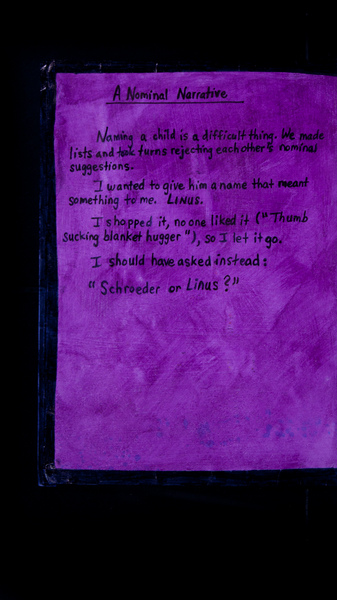 A Nominal Narrative
Naming a child is a difficult thing. We made
lists and took turns rejecting each other's nominal
suggestions.
I wanted to give him a name that meant
something to me. LINUS.
I shopped it, no one liked it ("Thumb
sucking blanket hugger"), so I let it go.
I should have asked instead:
"Schroeder or Linus?"